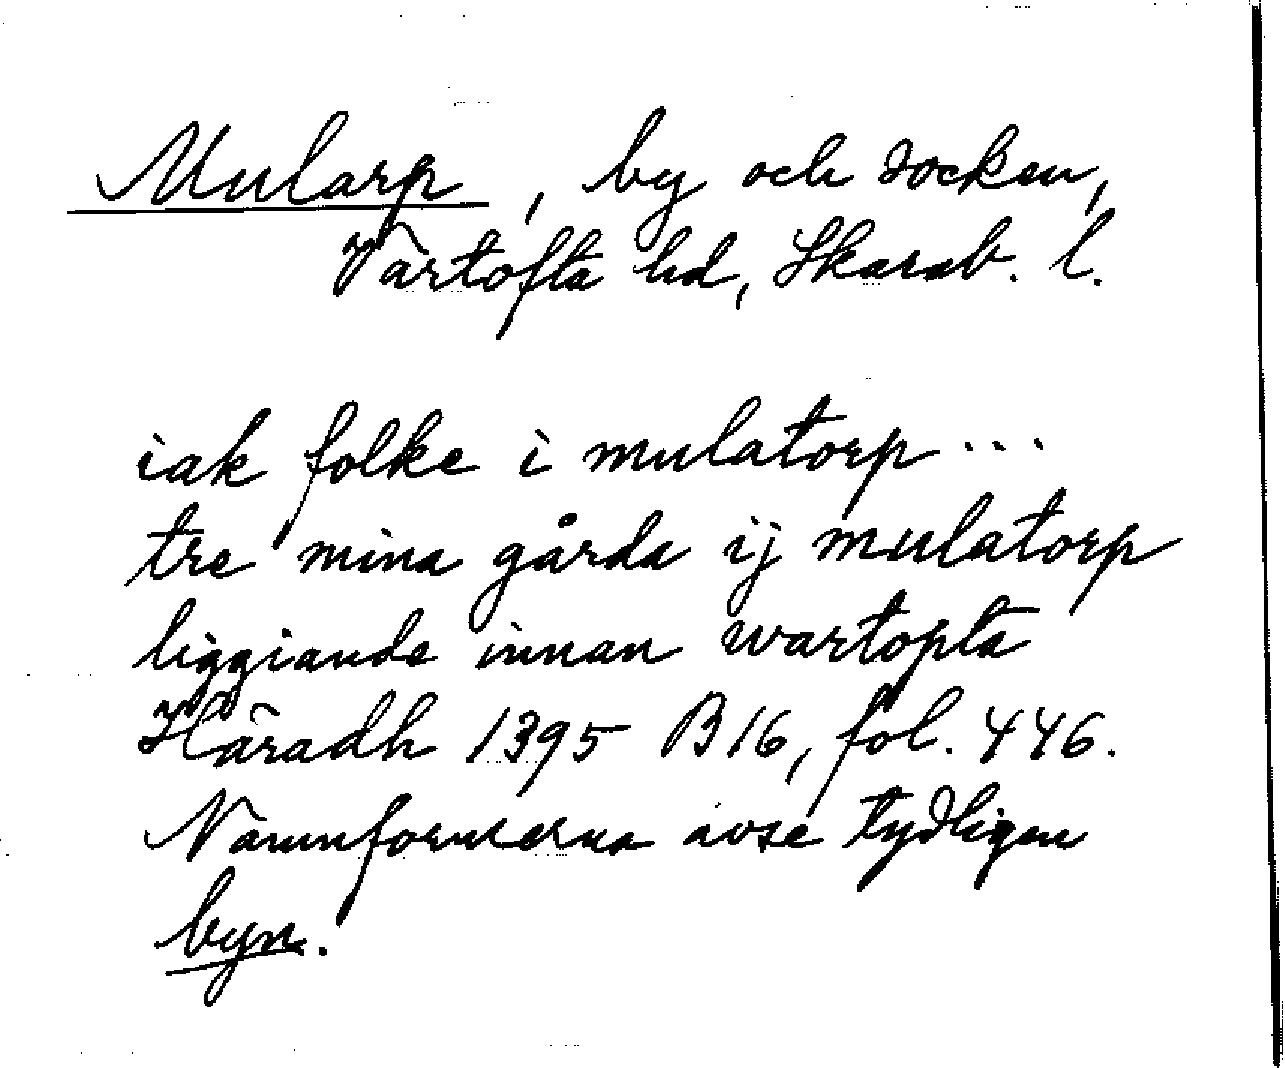 Mularp, by och socken,
Vartofta hd, Skarab. l.
iak folke i mulatorp...
tre mina gårda ij mulatorp
liggiande innan wartopta
Häradh 1395 B16, fol. 446.
Namnformerna avse tydligen
byn.